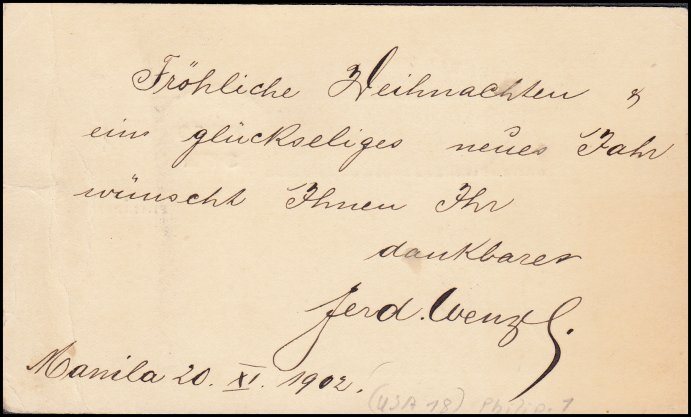 Fröhliche Weihnachten &
ein glückseliges neues Jahr
wünscht Ihnen Ihr
dankbarer
Ferd. Wenzl.
Manila 20. XI. 1902.
(USA 18) Philip. 1